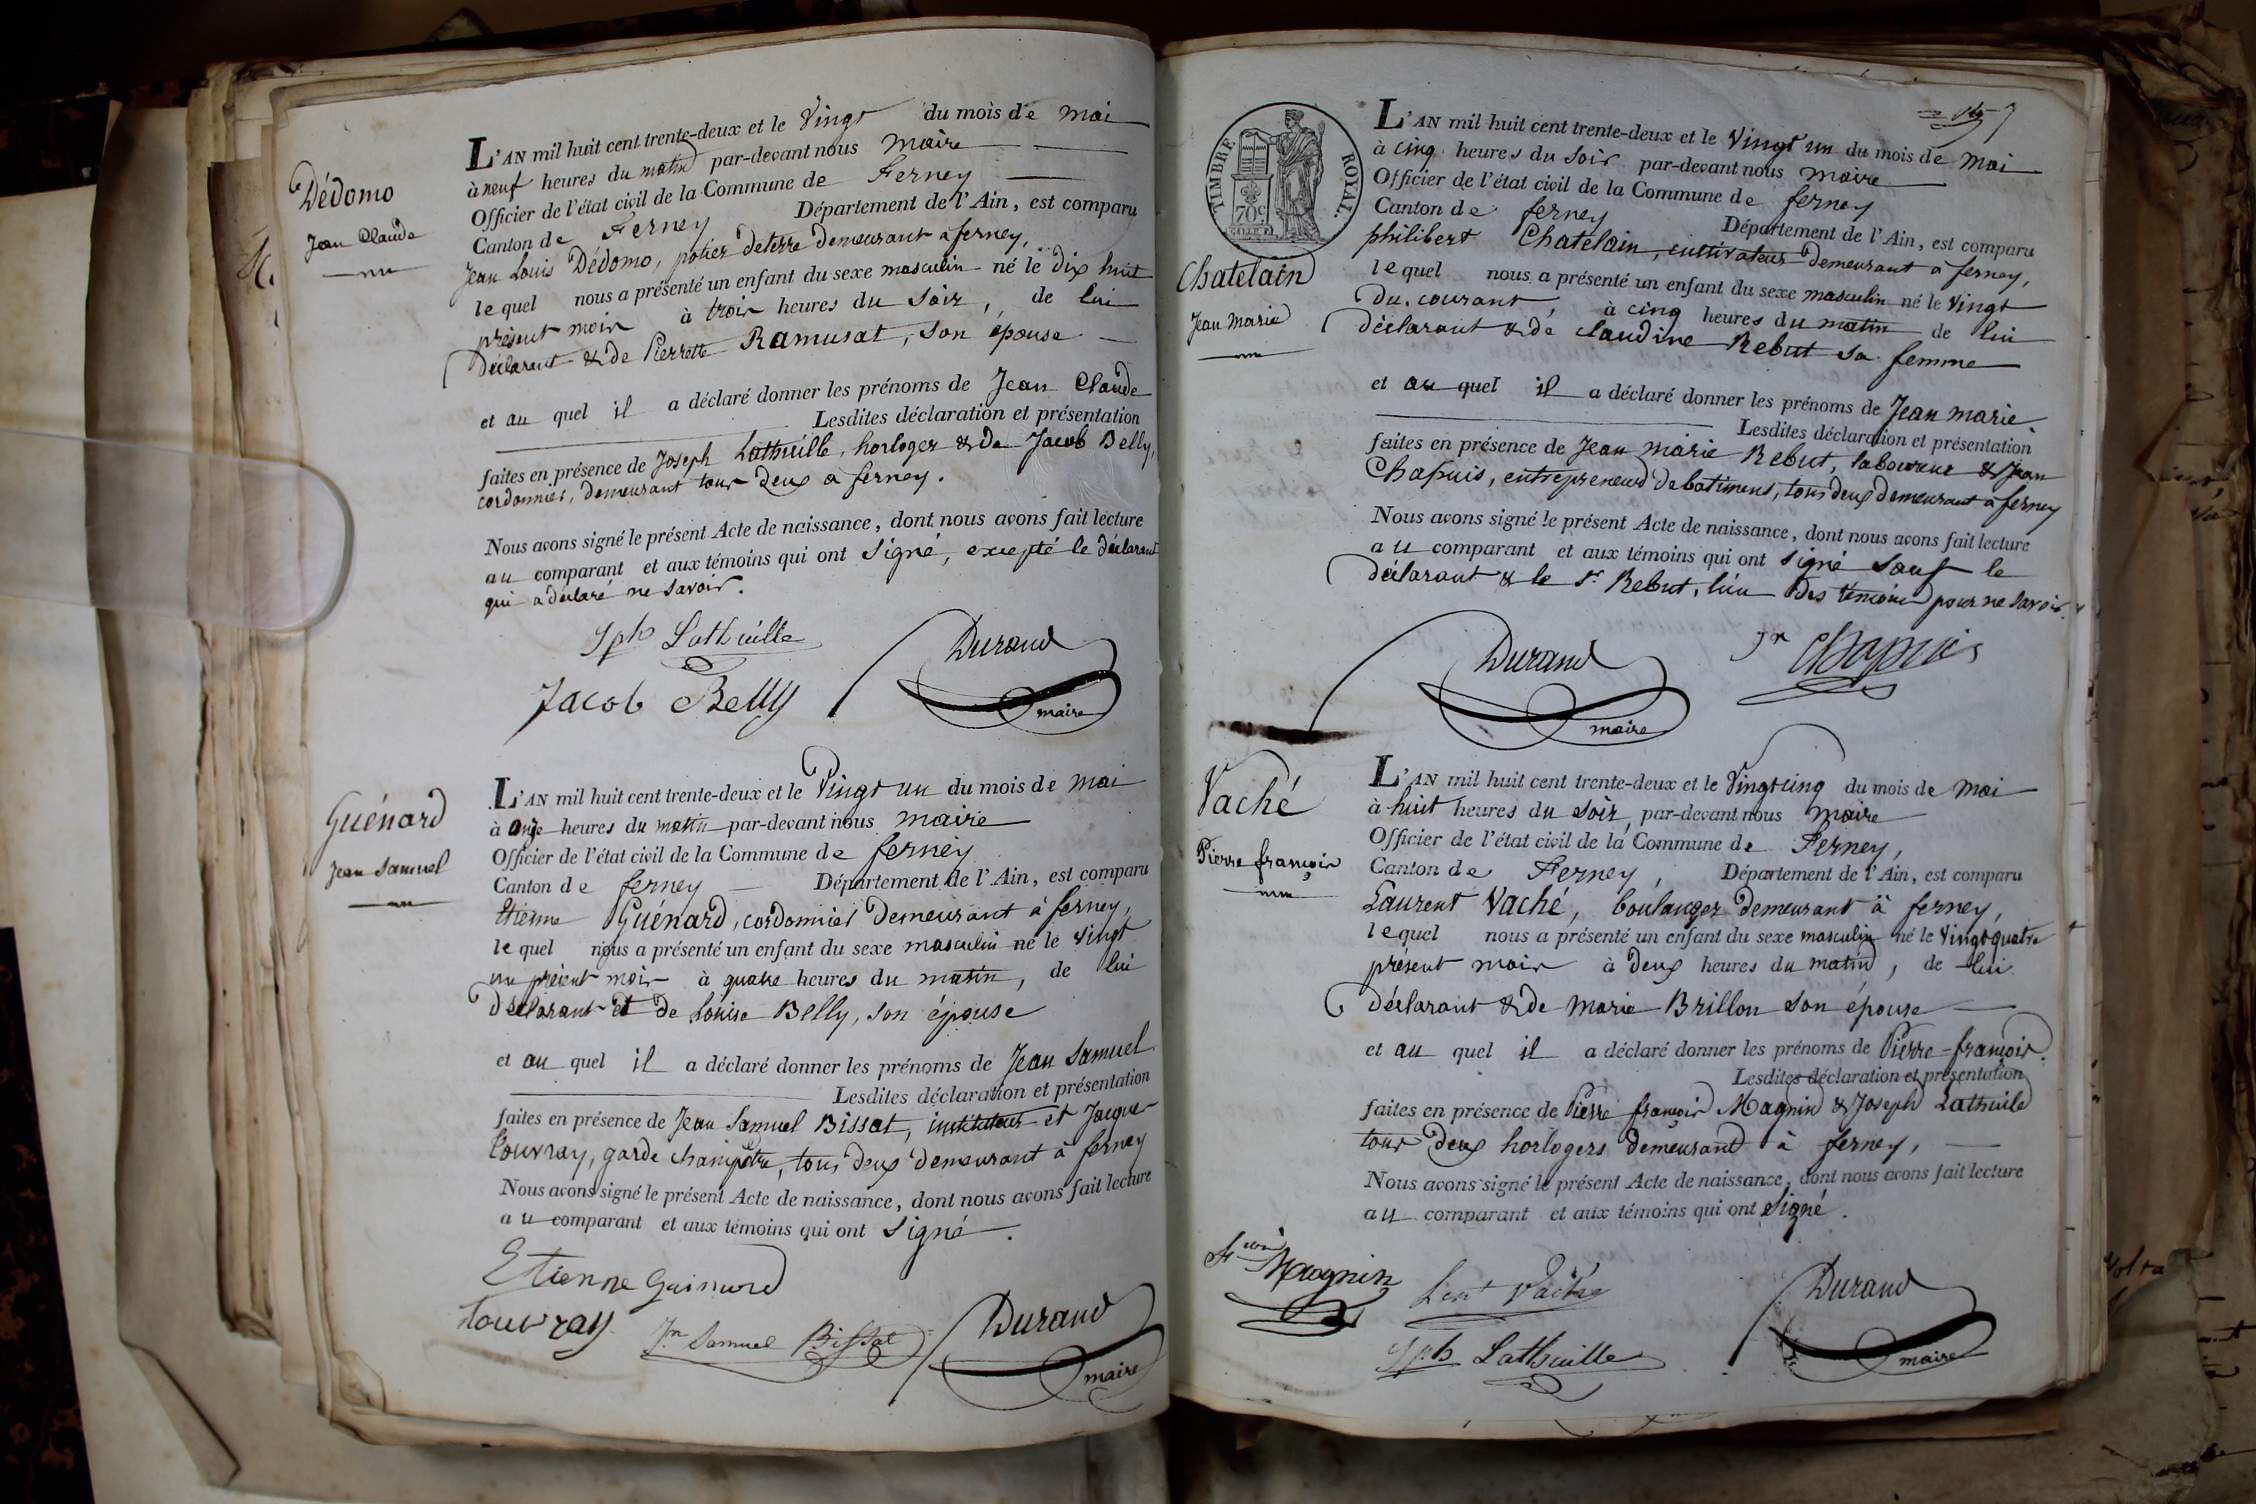 Dédomo
Jean Claude
L'AN mil huit cent trente-deux et le Vingt du mois de mai
à neuf heures du matin par-devant nous maire
Officier de l'état civil de la Commune de Ferney
Canton de Ferney Département de l'Ain, est comparu
Jean Louis Dédomo, potier de terre demeurant à ferney,
lequel nous a présenté un enfant du sexe masculin né le dix huit
présent mois à trois heures du soir, de lui
déclarant & de Pierrette Ramusat, son épouse
et au quel il a déclaré donner les prénoms de Jean Claude
Lesdites déclaration et présentation
faites en présence de Joseph Lathuille, horloger & de Jacob Belly,
cordonnier, demeurant tous deux à ferney.
Nous avons signé le présent Acte de naissance, dont nous avons fait lecture
au comparant et aux témoins qui ont signé, excepté le déclarant
qui a déclaré ne savoir.
Jph Lathuille
Durand
Jacob Belly
maire
Guénard
Jean Samuel
L'AN mil huit cent trente-deux et le Vingt un du mois de mai
à onze heures du matin par-devant nous maire
Officier de l'état civil de la Commune de ferney
Canton de ferney Département de l'Ain, est comparu
Etienne Guénard, cordonnier demeurant à ferney,
lequel nous a présenté un enfant du sexe masculin né le vingt
un présent mois à quatre heures du matin, de lui
déclarant et de Louise Belly, son épouse
et au quel il a déclaré donner les prénoms de Jean Samuel
Lesdites déclaration et présentation
faites en présence de Jean Samuel Bissat, instituteur et Jacques
Louvray, garde champêtre, tous deux demeurant à ferney
Nous avons signé le présent Acte de naissance, dont nous avons fait lecture
au comparant et aux témoins qui ont signé.
Etienne Guinard
Louvray
Jn Samuel Bissat
Durand
maire
TIMBRE ROYAL.
70c
Chatelain
Jean Marie
L'AN mil huit cent trente-deux et le Vingt un du mois de mai
à cinq heures du soir par-devant nous maire
Officier de l'état civil de la Commune de ferney
Canton de ferney Département de l'Ain, est comparu
philibert Chatelain, cultivateur demeurant à ferney,
lequel nous a présenté un enfant du sexe masculin né le vingt
du courant à cinq heures du matin de lui
déclarant & de claudine Rebut sa femme
et au quel il a déclaré donner les prénoms de Jean marie
Lesdites déclaration et présentation
faites en présence de Jean marie Rebut, laboureur & Jean
Chapuis, entrepreneur de batimens, tous deux demeurant à ferney
Nous avons signé le présent Acte de naissance, dont nous avons fait lecture
au comparant et aux témoins qui ont signé sauf le
déclarant & le sr Rebut, l'un des témoins pour ne savoir.
Durand
maire
Jn Chapuis
Vaché
Pierre françois
L'AN mil huit cent trente-deux et le Vingt cinq du mois de mai
à huit heures du soir, par-devant nous maire
Officier de l'état civil de la Commune de Ferney,
Canton de Ferney, Département de l'Ain, est comparu
Laurent Vaché, boulanger demeurant à ferney,
lequel nous a présenté un enfant du sexe masculin né le Vingt quatre
présent mois à deux heures du matin, de lui
déclarant & de marie Brillon son épouse
et au quel il a déclaré donner les prénoms de Pierre=françois.
Lesdites déclaration et présentation
faites en présence de Pierre françois Magnin & Joseph Lathuile
tous deux horlogers demeurant à ferney,
Nous avons signé le présent Acte de naissance, dont nous avons fait lecture
au comparant et aux témoins qui ont signé.
Magnin
Lent Vaché
Durand
Jph Lathuille
maire